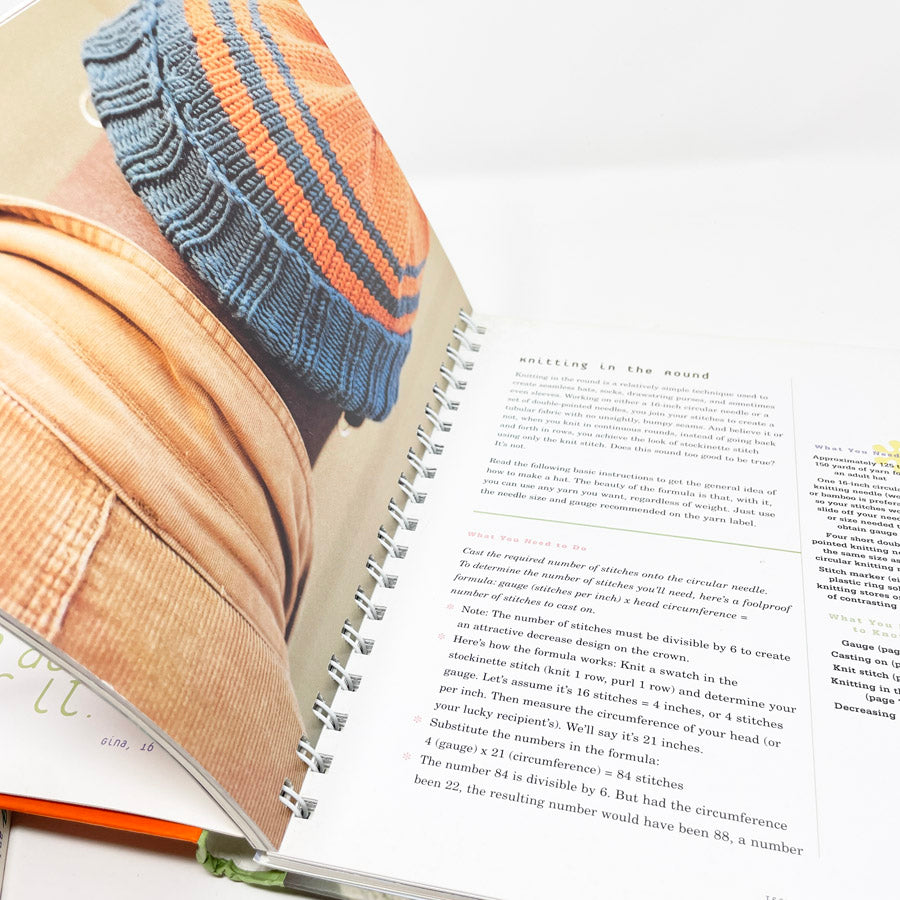 Knitting in the Round
Knitting in the round is a relatively simple technique used to
create seamless hats, socks, drawstring purses, and sometimes
even sleeves. Working on either a 16-inch circular needle or a
set of double-pointed needles, you join your stitches to create a
tubular fabric with no unsightly, bumpy seams. And believe it or
not, when you knit in continuous rounds, instead of going back
and forth in rows, you achieve the look of stockinette stitch
using only the knit stitch. Does this sound too good to be true?
It's not.
Read the following basic instructions to get the general idea of
how to make a hat. The beauty of the formula is that, with it,
you can use any yarn you want, regardless of weight. Just use
the needle size and gauge recommended on the yarn label.
What You Need to Do
Cast the required number of stitches onto the circular needle.
To determine the number of stitches you'll need, here's a foolproof
formula: gauge (stitches per inch) x head circumference =
number of stitches to cast on.
* Note: The number of stitches must be divisible by 6 to create
an attractive decrease design on the crown.
* Here's how the formula works: Knit a swatch in the
stockinette stitch (knit 1 row, purl 1 row) and determine your
gauge. Let's assume it's 16 stitches = 4 inches, or 4 stitches
per inch. Then measure the circumference of your head (or
your lucky recipient's). We'll say it's 21 inches.
* Substitute the numbers in the formula:
4 (gauge) x 21 (circumference) = 84 stitches
* The number 84 is divisible by 6. But had the circumference
been 22, the resulting number would have been 88, a number
What You Need
Approximately 125 t
150 yards of yarn fo
an adult hat
One 16-inch circula
knitting needle (wo
or bamboo is prefera
so your stitches wo
slide off your need
or size needed t
obtain gauge
Four short doub
pointed knitting ne
the same size as
circular knitting n
Stitch marker (ei
plastic ring sol
knitting stores o
of contrasting
What You
to Know
Gauge (pag
Casting on (p
Knit stitch (p
Knitting in th
(page
Decreasing
ll.
Gina, 16